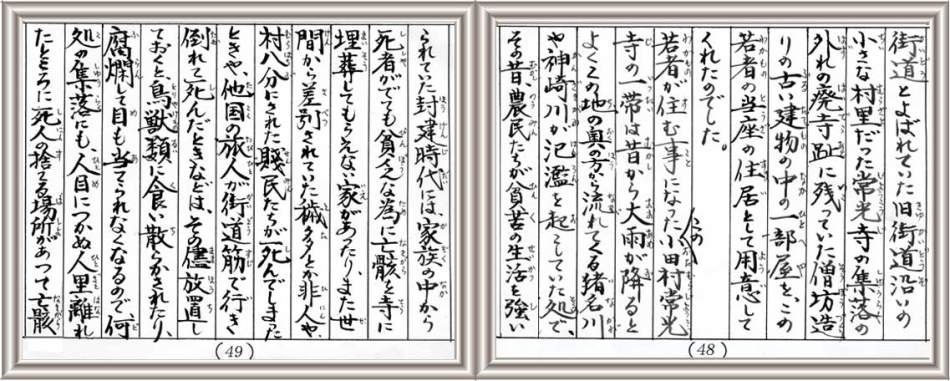 街道とよばれていた旧街道沿いの
小さな村里だった常光寺の集落の
外れの廃寺趾に残っていた僧坊造
りの古い建物の中の一部屋を、この
若者の当座の住居として用意して
くれたのでした。
若者が住む事になった小田村常光
寺の一帯は昔から大雨が降ると
よくこの地の奥の方から流れてくる猪名川
や、神崎川が氾濫を起こしていた処で、
その昔、農民たちが貧苦の生活を強い
(48)
られていた封建時代には、家族の中から
死者がでても貧乏な為に亡骸を寺に
埋葬してもらえない家があったり、また世
間から差別されていた穢多とか非人や、
村八分にされた賤民たちが死んでしまった
ときや、他国の旅人が街道筋で行き
倒れて死んだときなどは、その儘放置し
ておくと、鳥獣類に食い散らかされたり、
腐爛して目も当てられなくなるので、何
処の集落にも、人目につかぬ人里離れ
たところに死人の捨てる場所があって亡骸
(49)